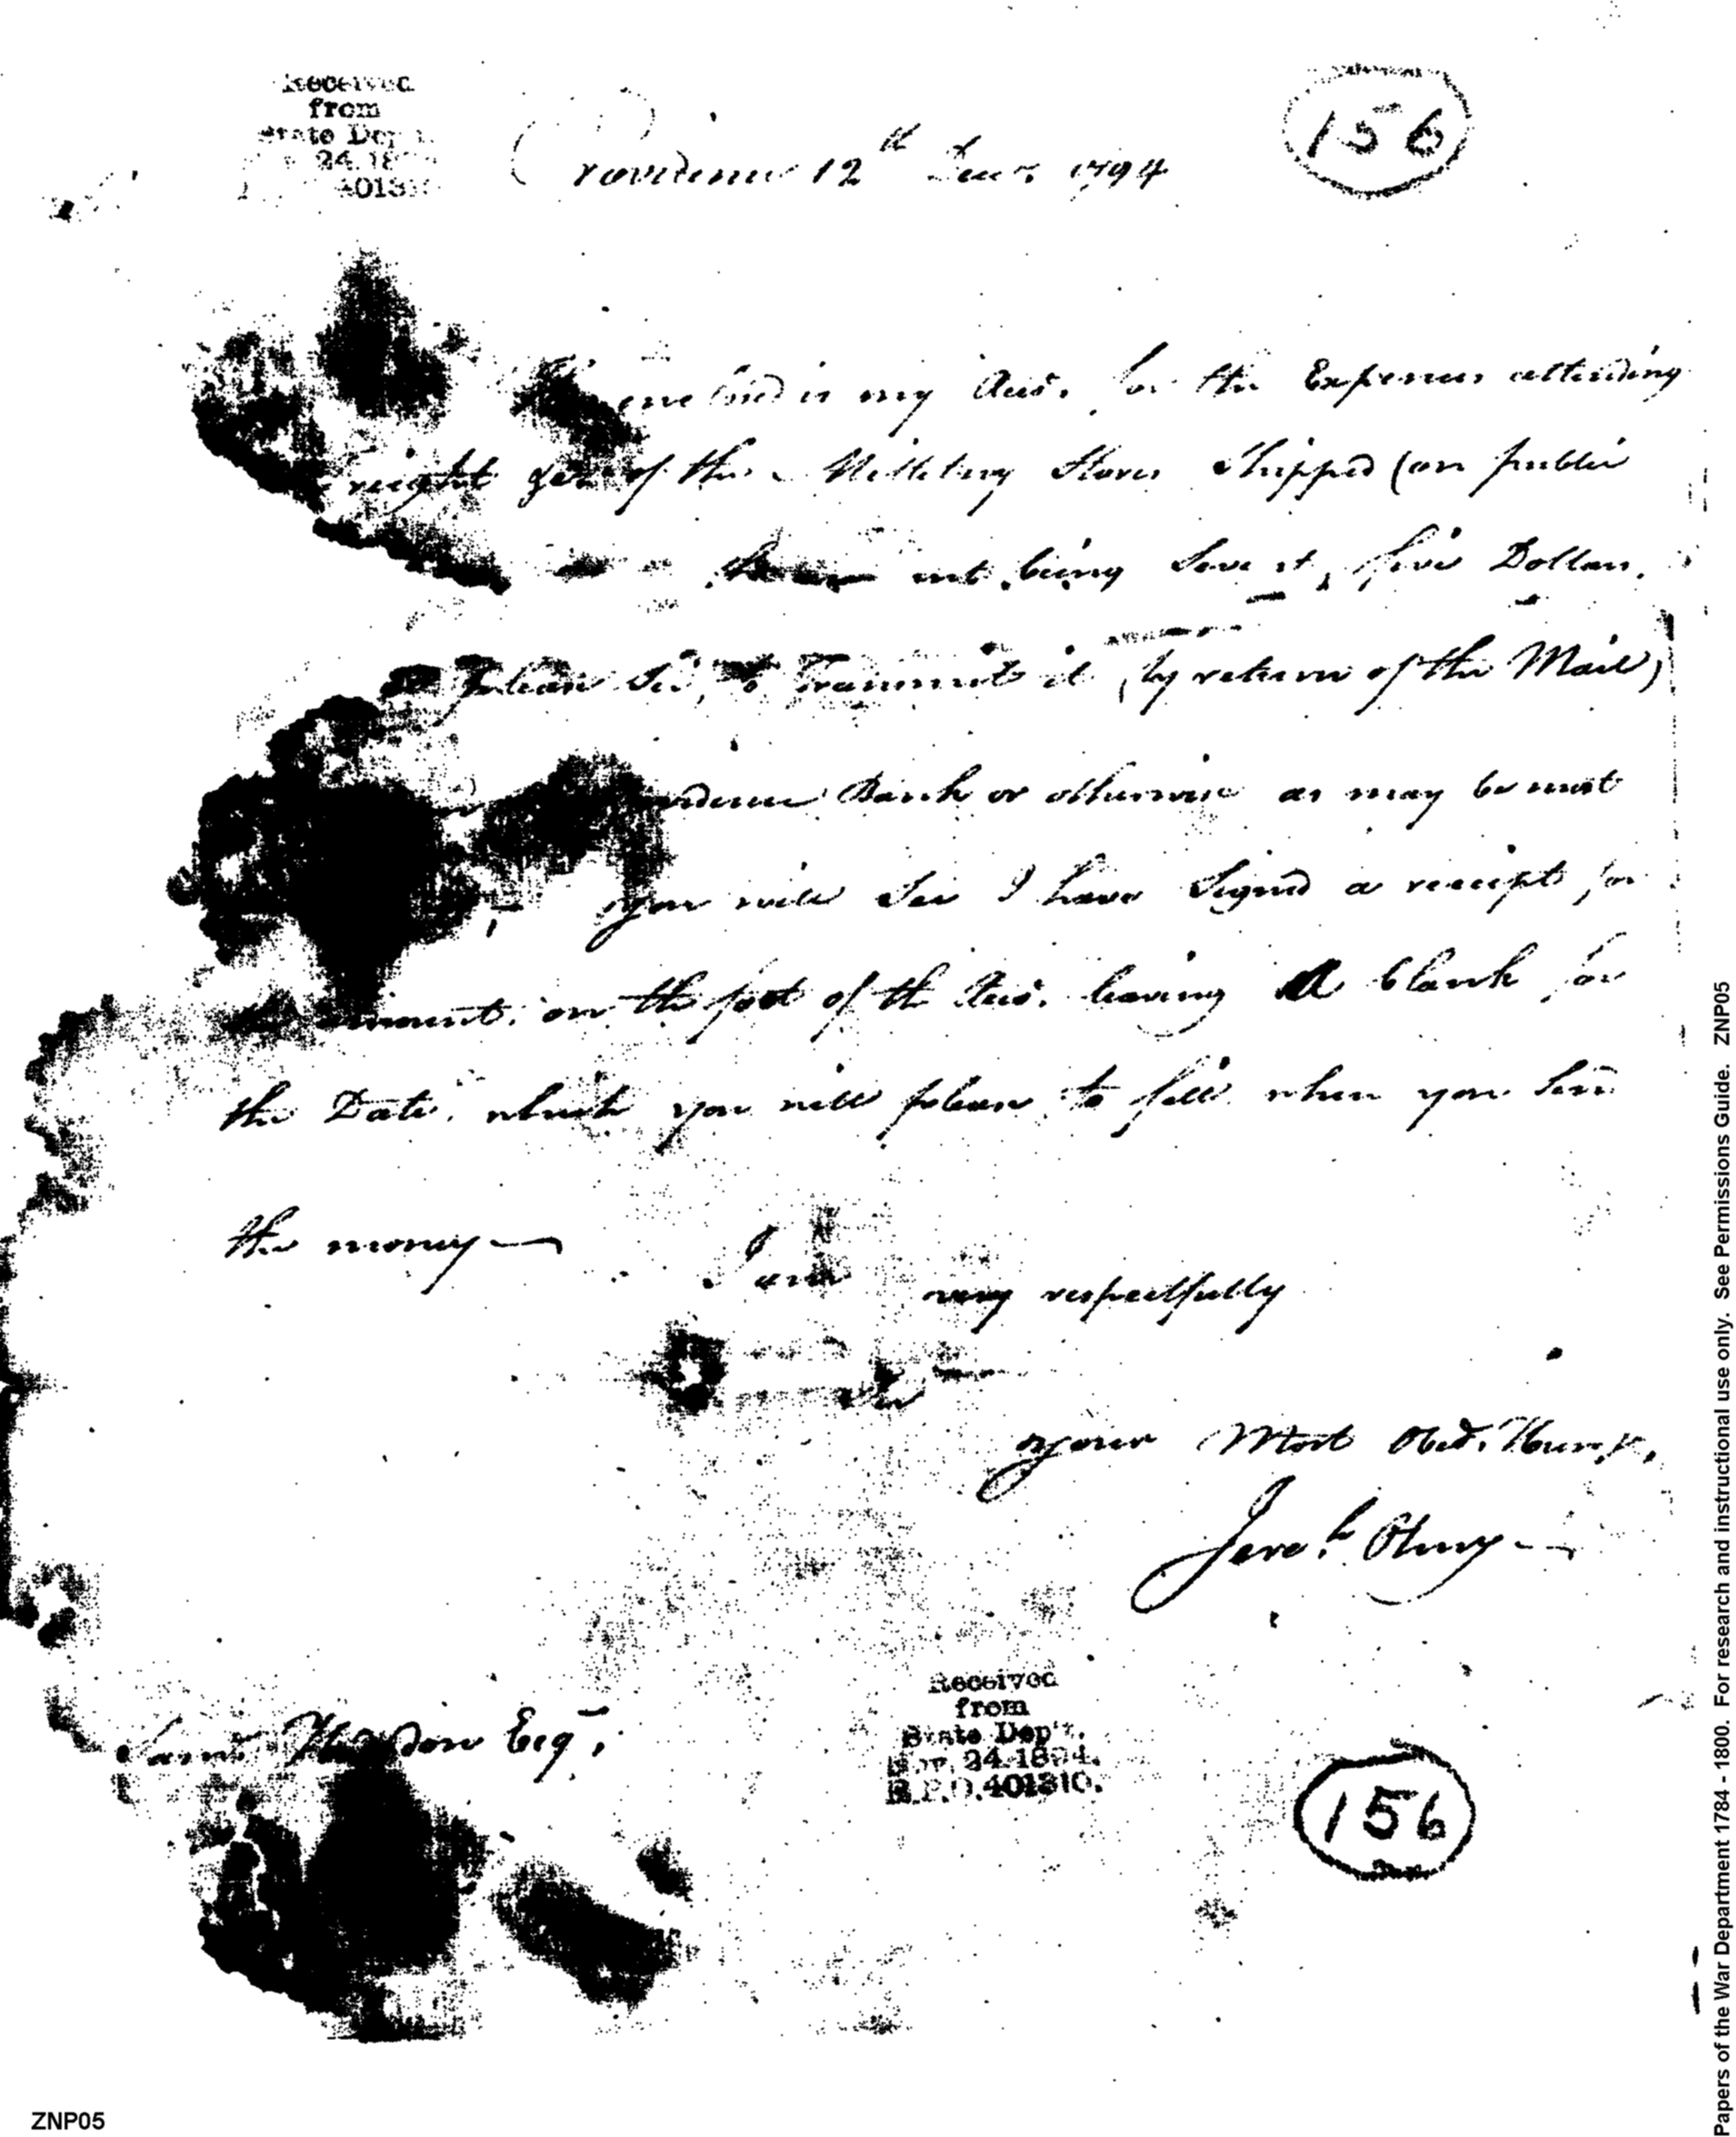 Received
from
State Dep
24 18
4013
156
Providence 12th Decr. 1794
enclosed is my Acct. for the Expences attending
freight &c. of the Military Stores Shipped (on public
amt. being seventy five Dollars.
please Sir, to Transmit it (by return of the Mail)
Providence Bank or otherwise as may be most
you will See I have Signed a receipt for
amount, on the foot of the Acct. leaving A blank for
the Date, which you will please to fill when you send
the money —
I am
very respectfully
Sir
your Most Obed. Hum.
Jereh. Olney
Saml Hodgdon Esqr.
Received
from
State Dep't.
Nov. 24 1894.
R.P.O. 401310.
156
ZNP05
Papers of the War Department 1784 - 1800. For research and instructional use only. See Permissions Guide. ZNP05